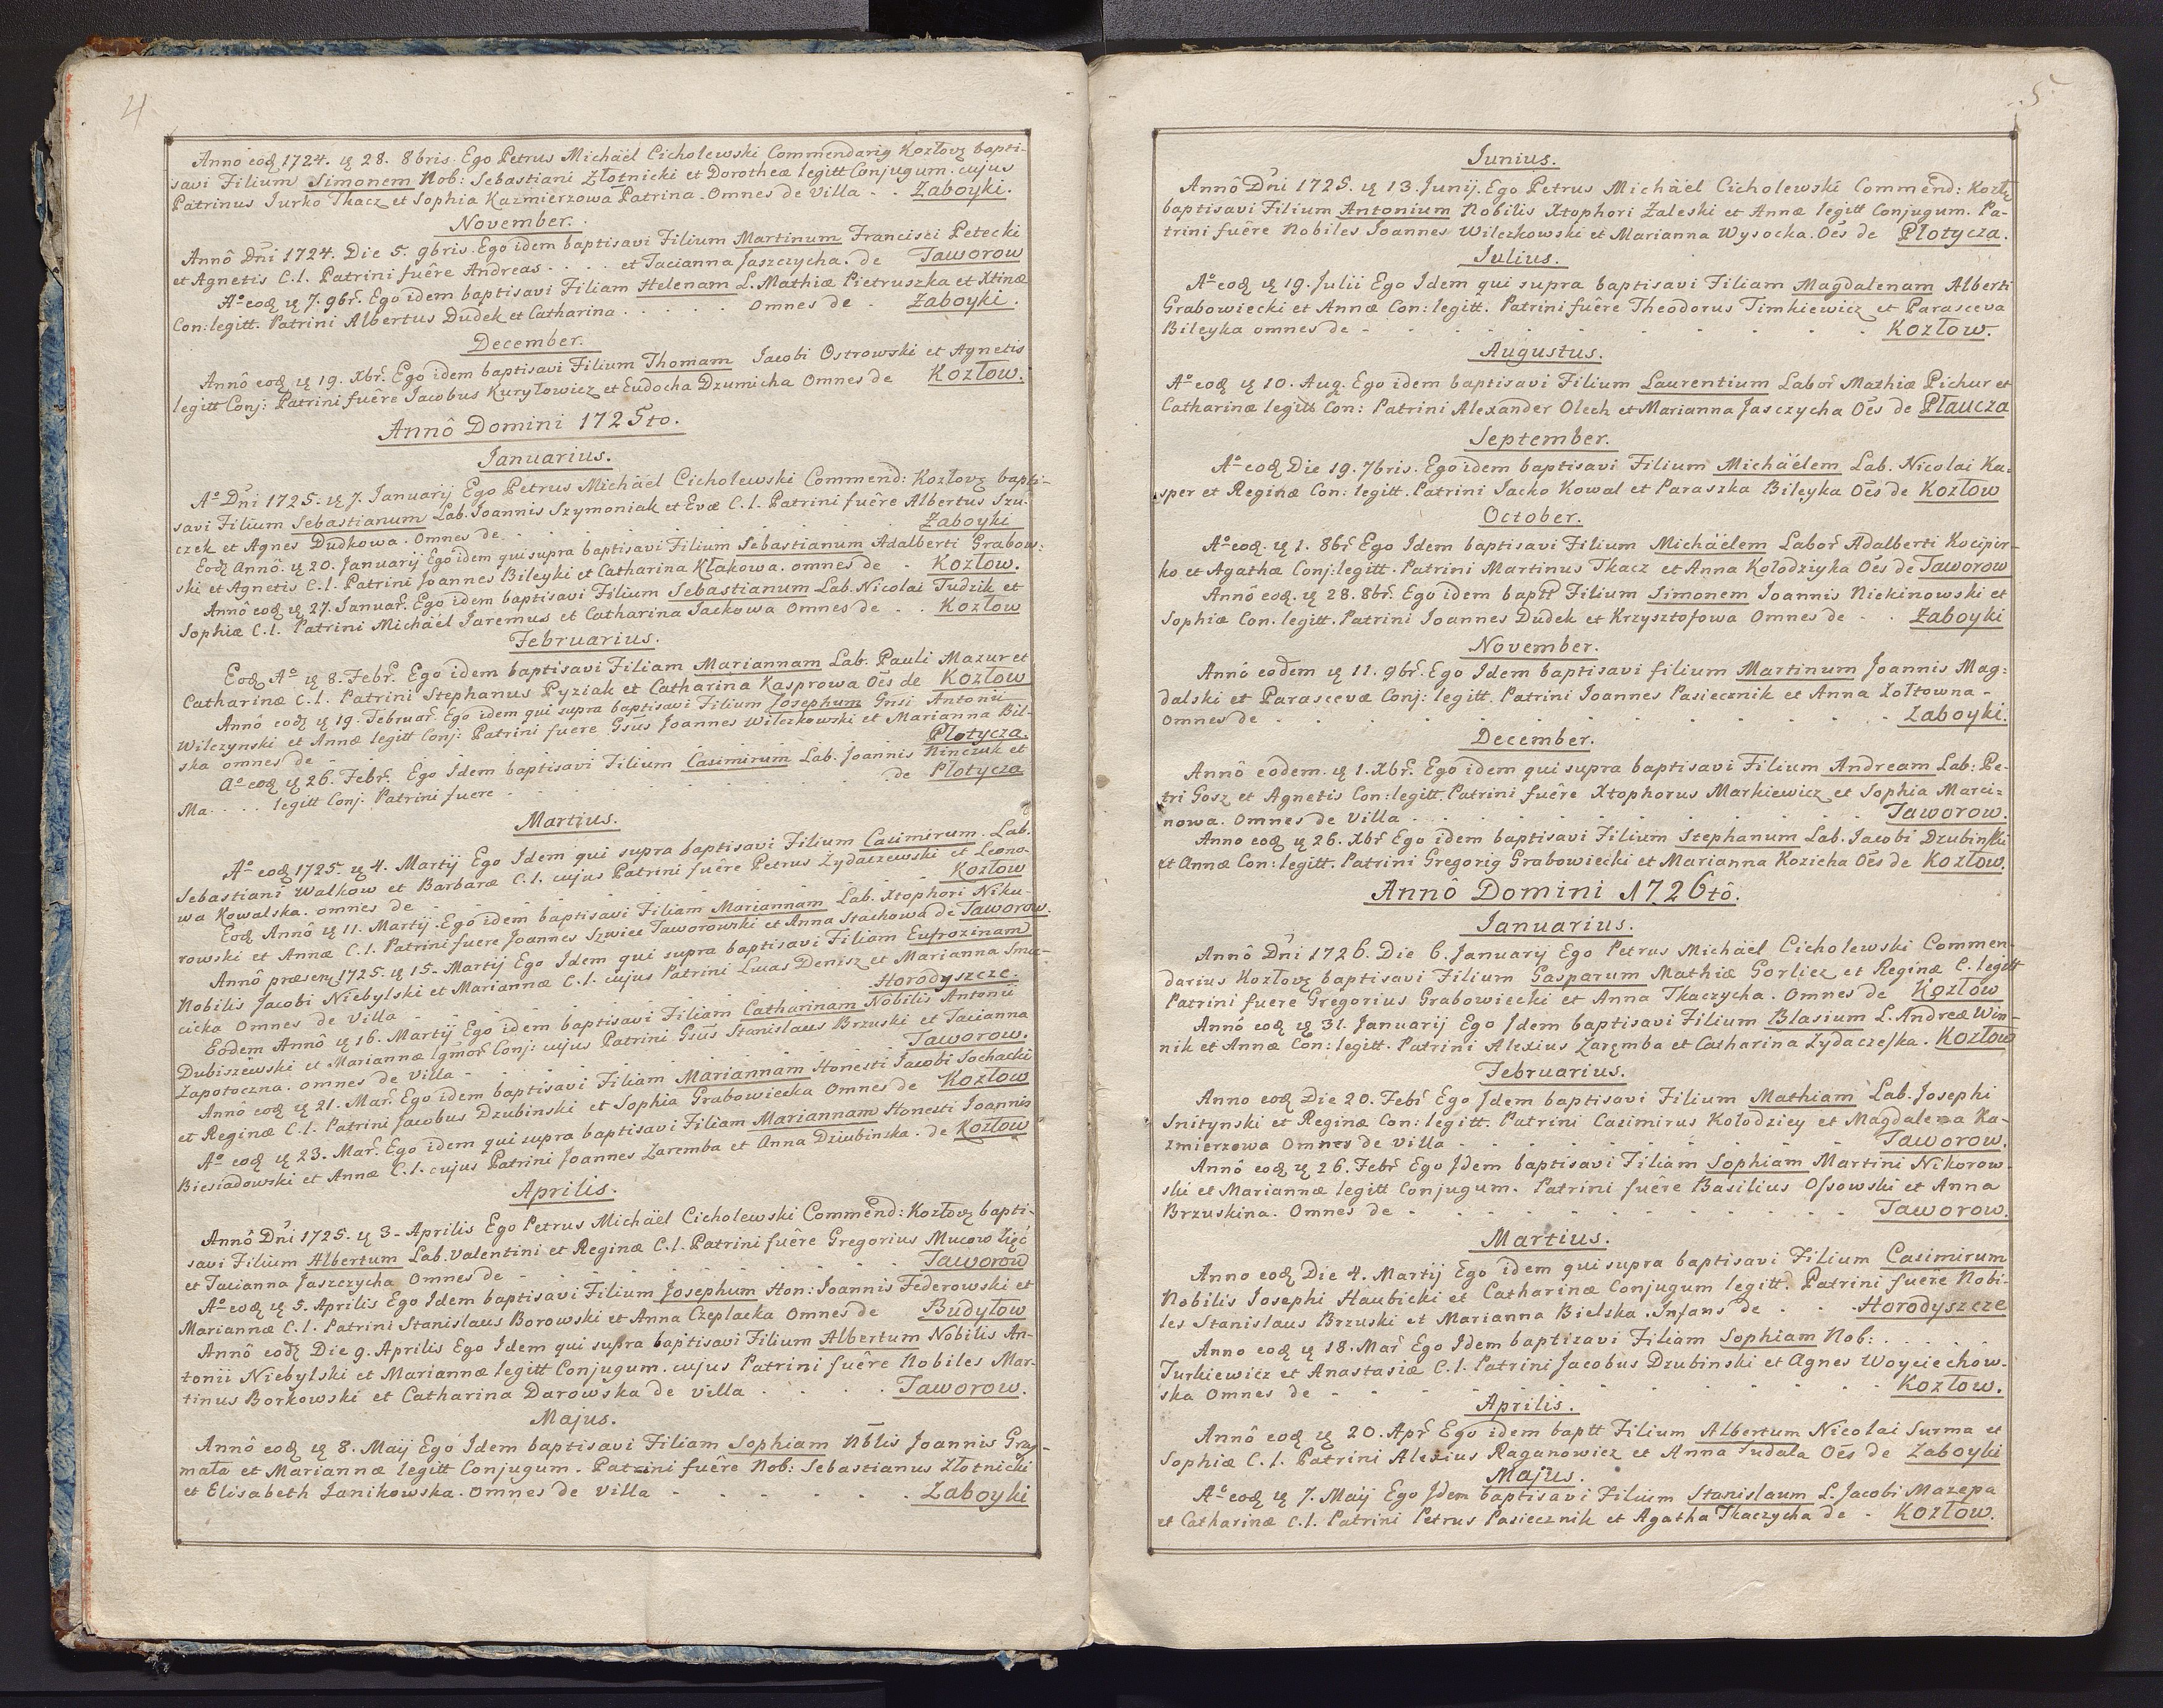 4
Anno eodꝫ 1724. ıꝗ 28. 8bris. Ego Petrus Michäel Cicholewski Commendariꝗ Kozłovꝫ bapti-
savi Filium Simonem Nob: Sebastiani Złotnicki et Dorotheæ legitt Conjugum. cujus
Patrinus Jurko Tkacz et Sophia Kazmierzowa Patrina. Omnes de Villa - - Zaboyki.
November.
Annô Dni 1724. Die 5. 9bris. Ego idem baptisavi Filium Martinum Francisci Petecki
et Agnetis C.l. Patrini fuêre Andreas . . . . et Tacianna Jaszczycha. de Taworow
Aº eodꝫ ıꝗ 7. 9br. Ego idem baptisavi Filiam Helenam L. Mathiæ Pietruszka et Xtinæ
Con: legitt. Patrini Albertus Dudek et Catharina . . . . . Omnes de - Zaboyki.
December.
Annô eodꝫ ıꝗ 19. Xbr. Ego idem baptisavi Filium Thomam Jacobi Ostrowski et Agnetis
legitt Conj: Patrini fuêre Jacobus Kuryłowicz et Eudocha Dzumicha Omnes de Kozłow.
Annô Domini 1725to.
Januarius.
Aº Dni 1725. ıꝗ 7. Januarij Ego Petrus Michäel Cicholewski Commend: Kozłovꝫ bapti-
savi Filium Sebastianum Lab. Joannis Szymoniak et Evæ C.l. Patrini fuêre Albertus Szu-
czek et Agnes Dudkowa. Omnes de . . . . . Zaboyki
Eodꝫ Annô. ıꝗ 20. Januarij Ego idem qui supra baptisavi Filium Sebastianum Adalberti Grabow:
ski et Agnetis C.l. Patrini Joannes Bileyki et Catharina Kłakowa. omnes de - Kozłow.
Annô eodꝫ ıꝗ 27. Januar. Ego idem baptisavi Filium Sebastianum Lab. Nicolai Tudzik et
Sophiæ C.l. Patrini Michäel Jaremus et Catharina Jackowa Omnes de - . Kozłow
Februarius.
Eodꝫ Aº ıꝗ 8. Febr. Ego idem baptisavi Filiam Mariannam Lab. Pauli Mazur et
Catharinæ C.l. Patrini Stephanus Pyziak et Catharina Kasprowa Oēs de Kozłow
Annô eodꝫ ıꝗ 19. Februar. Ego idem qui supra baptisavi Filium Josephum Gnsi Antonii
Wilczynski et Annæ legitt Conj: Patrini fuere Gsūs Joannes Wilczkowski et Marianna Bil-
ska omnes de - - Plotycza.
Aº eodꝫ ıꝗ 26. Febr. Ego Idem baptisavi Filium Casimirum Lab. Joannis Ninczuk et
Ma . . . . legitt Conj. Patrini fuere - . . . . de Plotycza
Martius.
Aº eodꝫ 1725. ıꝗ 4. Martij Ego Idem qui supra baptisavi Filium Casimirum. Lab.
Sebastiani Walkow et Barbaræ C.l. cujus Patrini fuêre Petrus Zydaczewski et Leono-
wa Kowalska. omnes de - - Kozłow
Eodꝫ Annô ıꝗ 11. Martij. Ego idem baptisavi Filiam Mariannam Lab. Xtophori Niku-
rowski et Annæ C.l. Patrini fuere Joannes Szwiec Taworowski et Anna Stachowa de Taworow.
Annô præsenꝫ 1725. ıꝗ 15. Martij Ego Idem qui supra baptisavi Filiam Eufrozinam
Nobilis Jacobi Niebylski et Mariannæ C.l. cujus Patrini Lucas Denisz et Marianna Sma-
cicka Omnes de Villa - - Horodyszcze.
Eodem Annô ıꝗ 16. Martij Ego idem baptisavi Filiam Catharinam Nobilis Antonii
Dubiszewski et Mariannæ lgmor Conj: cujus Patrini Gsūs Stanislaus Brzuski et Tacianna
Zapotoczna. omnes de Villa - - Taworow.
Annô eodꝫ ıꝗ 21. Mar. Ego idem baptisavi Filiam Mariannam Honesti Jacobi Sochacki
et Reginæ C.l. Patrini Jacobus Dzubinski et Sophia Grabowiecka Omnes de Kozłow
Aº eodꝫ ıꝗ 23. Mar. Ego idem qui supra baptisavi Filiam Mariannam Honesti Joannis
Biesiadowski et Annæ C.l. cujus Patrini Joannes Zaremba et Anna Dziubinska. de Kozłow
Aprilis.
Annô Dni 1725. ıꝗ 3 - Aprilis Ego Petrus Michäel Cicholewski Commend: Kozłovꝫ bapti-
savi Filium Albertum Lab. Valentini et Reginæ C.l. Patrini fuêre Gregorius Mucow Zięć
et Tacianna Jaszczycha Omnes de - - Taworow
Aº eodꝫ ıꝗ 5. Aprilis Ego Idem baptisavi Filium Josephum Hon: Joannis Federowski et
Mariannæ C.l. Patrini Stanislaus Borowski et Anna Czeplacka Omnes de Budyłow
Annô eodꝫ Die 9. Aprilis Ego Idem qui supra baptisavi Filium Albertum Nobilis An-
tonii Niebylski et Mariannæ legitt Conjugum. cujus Patrini fuêre Nobiles Mar-
tinus Borkowski et Catharina Darowska de villa . . . . Taworow.
Majus.
Annô eodꝫ ıꝗ 8. Maij Ego Idem baptisavi Filiam Sophiam Nblis Joannis Gra-
mata et Mariannæ legitt Conjugum. Patrini fuêre Nob: Sebastianus Złotnicki
et Elisabeth Janikowska. Omnes de Villa - - - - - - Zaboyki
5
Junius.
Annô Dni 1725. ıꝗ 13. Junij. Ego Petrus Michäel Cicholewski Commend: Kozłꝫ
baptisavi Filium Antonium Nobilis Xtophori Zaleski et Annæ legitt Conjugum. Pa-
trini fuêre Nobiles Joannes Wilczkowski et Marianna Wysocka. Oēs de Plotycza.
Julius.
Aº eodꝫ ıꝗ 19. Julii Ego Idem qui supra baptisavi Filiam Magdalenam Alberti
Grabowiecki et Annæ Con: legitt. Patrini fuêre Theodorus Timkiewicz et Parasceva
Bileyka omnes de - - - - - - Kozłow.
Augustus.
Aº eodꝫ ıꝗ 10. Aug. Ego idem baptisavi Filium Laurentium Labor Mathiæ Pichur et
Catharinæ legitt Con: Patrini Alexander Olech et Marianna Jasczycha Oēs de Płaucza
September.
Aº eodꝫ Die 19. 7bris. Ego idem baptisavi Filium Michäelem Lab. Nicolai Ka-
sper et Reginæ Con: legitt. Patrini Jacko Kowal et Paraszka Bileyka Oēs de Kozłow
October.
Aº eodꝫ. ıꝗ 1. 8br Ego Idem baptisavi Filium Michäelem Labor Adalberti Kocipir-
ko et Agathæ Conj: legitt. Patrini Martinus Tkacz et Anna Kołodziyka Oēs de Taworow
Annô eodꝫ. ıꝗ 28. 8br. Ego idem baptt Filium Simonem Joannis Niekinowski et
Sophiæ Con. legitt. Patrini Joannes Dudek et Krzysztofowa Omnes de - . Zaboyki
November.
Annô eodem ıꝗ 11. 9br. Ego Idem baptisavi filium Martinum Joannis Mag-
dalski et Parascevæ Conj: legitt. Patrini Joannes Pasiecznik et Anna Zołtowna -
Omnes de - - - - - - Zaboyki.
December.
Annô eodem. ıꝗ 1. Xbr. Ego idem qui supra baptisavi Filium Andream Lab: Pe-
tri Gosz et Agnetis Con: legitt. Patrini fuêre Xtophorus Markiewicz et Sophia Marci-
nowa. Omnes de Villa - - - - - Taworow.
Anno eodꝫ ıꝗ 26. Xbr Ego idem baptisavi Filium Stephanum Lab. Jacobi Dzubinski
et Annæ Con: legitt. Patrini Gregoriꝗ Grabowiecki et Marianna Kozicha Oēs de Kozłow.
Annô Domini 1726tô.
Januarius.
Annô Dni 1726. Die 6. Januarij Ego Petrus Michäel Cicholewski Commen-
darius Kozłovꝫ baptisavi Filium Gasparum Mathiæ Gorlicz et Reginæ C. legitt
Patrini fuere Gregorius Grabowiecki et Anna Tkaczycha. Omnes de Kozłow
Annô eodꝫ ıꝗ 31. Januarij Ego Idem baptisavi Filium Blasium L. Andreæ Win-
nik et Annæ Con: legitt. Patrini Alexius Zaręmba et Catharina Zydaczeſka. Kozłow
Februarius.
Anno eodꝫ Die 20. Febr Ego Idem baptisavi Filium Mathiam Lab. Josephi
Snitynski et Reginæ Con: legitt. Patrini Casimirus Kołodziey et Magdalena Ka-
zmierzowa Omnes de villa - - - - - Taworow.
Annô eodꝫ ıꝗ 26. Febr Ego Idem baptisavi Filiam Sophiam Martini Nikorow-
ski et Mariannæ legitt Conjugum. Patrini fuêre Basilius Oſsowski et Anna
Brzuskina. Omnes de - - - - - Taworow.
Martius.
Anno eodꝫ Die 4. Martij Ego idem qui supra baptisavi Filium Casimirum
Nobilis Josephi Haubicki et Catharinæ Conjugum legitt. Patrini fuêre Nobi-
les Stanislaus Brzuski et Marianna Bielska. Infans de - - - Horodyszcze
Anno eodꝫ ıꝗ 18. Mar Ego Idem baptizavi Filiam Sophiam Nob: . . . . .
Turkiewicz et Anastasiæ C.l. Patrini Jacobus Dzubinski et Agnes Woyciechow-
ska Omnes de - - - - - Kozłow.
Aprilis.
Annô eodꝫ ıꝗ 20. Apr Ego idem baptt Filium Albertum Nicolai Surma et
Sophiæ C.l. Patrini Alexius Raganowicz et Anna Sudała Oēs de Zaboyki
Majus.
Aº eodꝫ ıꝗ 7. Maij Ego Idem baptisavi Filium Stanislaum L. Jacobi Mazepa
et Catharinæ C.l. Patrini Petrus Pasiecznik et Agatha Tkaczycha de - Kozłow.